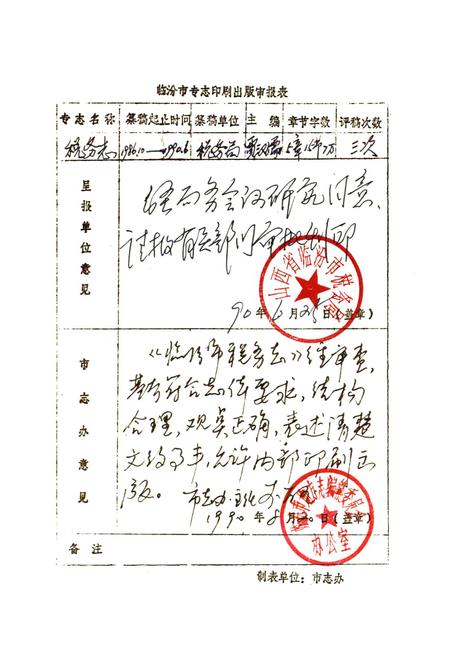 临汾市专志印刷出版审报表
专志名称 纂稿起止时间 纂稿单位 主编 章节字数 评稿次数
税务志 1986.10—1990.6 税务局 三次
呈报单位意见
经局务会议研究同意,
请核有关部门审批付印
山西省临汾市税务局
90年6月25日(盖章)
市志办意见
《临汾市税务志》经审查,
基本符合志体要求,结构
合理,观点正确,表述清楚
文约事丰,允许内部印刷出
版。
1990年8月20日(盖章)
办公室
备注
制表单位:市志办